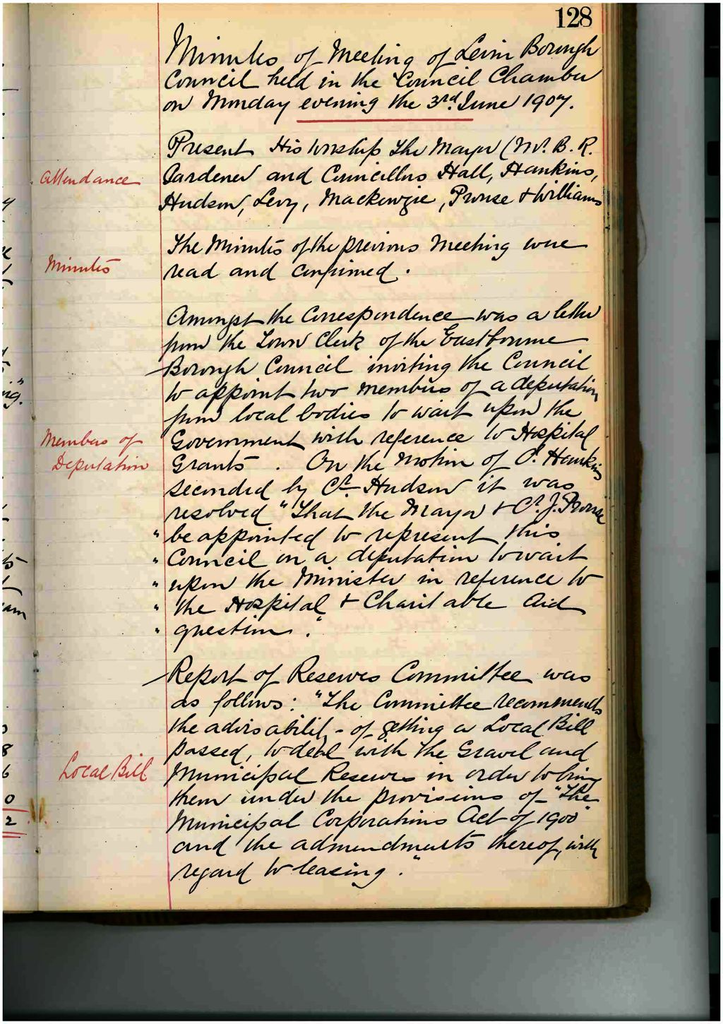 128
Minutes of Meeting of Levin Borough
Council held in the Council Chamber
on Monday evening the 3rd June 1907.
Attendance
Present His Worship the Mayor (Mr. B. R.
Gardener and Councillors Hall, Hankins,
Hudson, Levy, Mackenzie, Prouse & Williams
Minutes
The Minutes of the previous Meeting were
read and confirmed.
Amongst the Correspondence was a letter
from the Town Clerk of the Eastbourne
Borough Council inviting the Council
to appoint two members of a deputation
from local bodies to wait upon the
Members of
Deputation
Government with reference to Hospital
Grants. On the Motion of Cr. Hankins
seconded by Cr. Hudson it was
resolved "That the Mayor & Cr. J. Prouse
" be appointed to represent this
" Council on a deputation to wait
" upon the Minister in reference to
" the Hospital & Charitable Aid
" question."
Report of Reserves Committee was
as follows: "The Committee recommends
the advisability of getting a Local Bill
Local Bill
passed, to deal with the Gravel and
Municipal Reserves in order to bring
them under the provisions of "The
Municipal Corporations Act of 1900"
and the admendments thereof, with
regard to leasing."